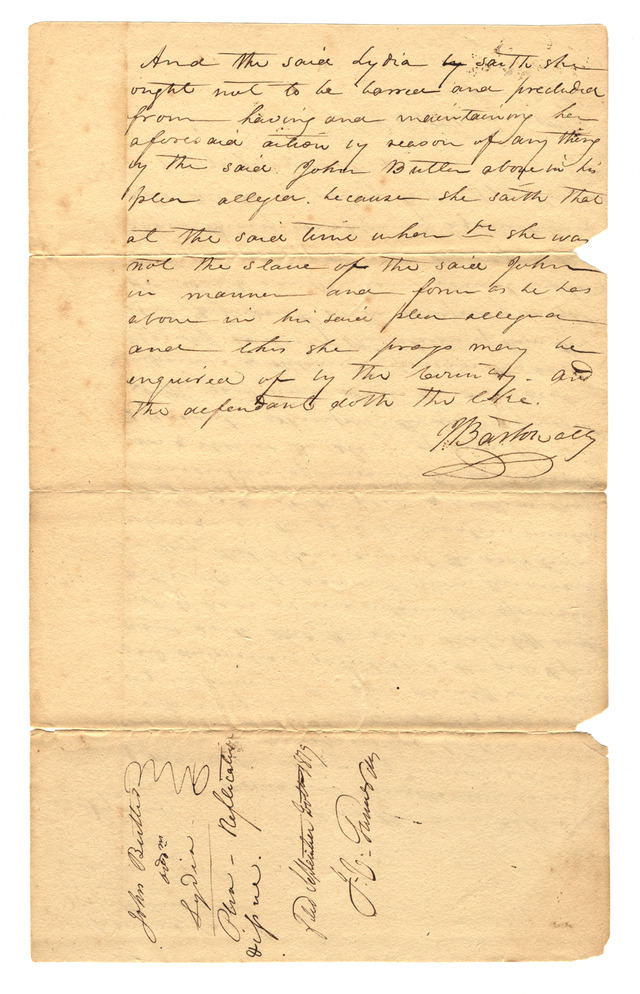 And the said Lydia by saith she
ought not to be barred and precluded
from having and maintaining her
aforesaid action by reason of any thing
by the said John Butler above in his
plea alleged. because she saith that
at the said time when &c she was
not the slave of the said John
in manner and form as he has
above in his said plea alleged
and this she prays may be
enquired of by the Country - and
the defendant doth the like.
Barton atty
John Butler
ads
Lydia
Plea - Replication
& issue.
filed September 20th 1819